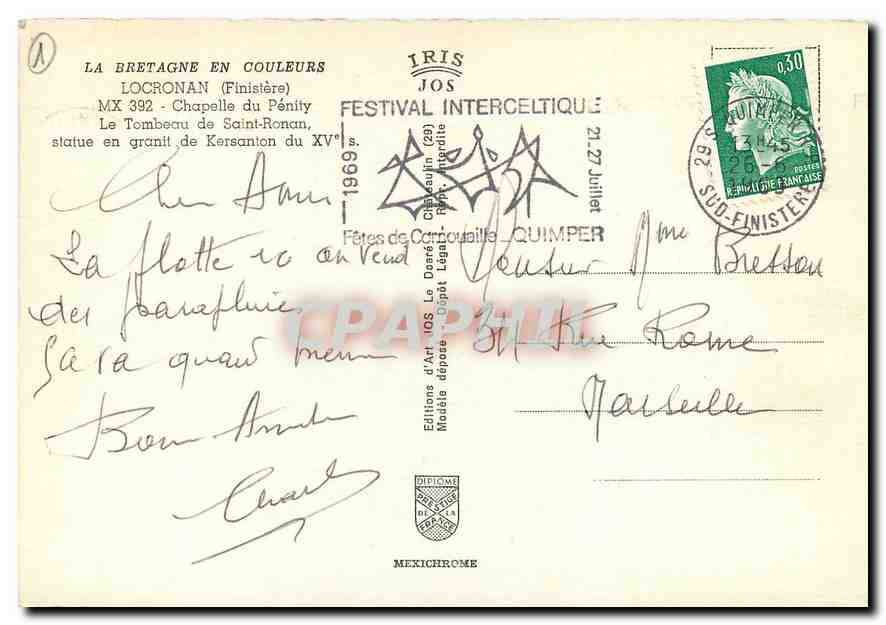 1
LA BRETAGNE EN COULEURS
LOCRONAN (Finistère)
MX 392 - Chapelle du Pénity
Le Tombeau de Saint-Ronan,
statue en granit de Kersanton du XVe s.
IRIS
JOS
FESTIVAL INTERCELTIQUE
1969
21.27 Juillet
Fêtes de Cornouaille _ QUIMPER
0,30
POSTES
REPUBLIQUE FRANÇAISE
29 S QUIMPER
13H45
26-
SUD-FINISTERE
Cher Ami
La flotte ici on vend
des parapluies
Ça va quand même
Bonne
Charles
Editions d'Art JOS Le Doaré - Châteaulin (29)
Modèle déposé - Dépôt Légal - Repr. Interdite
Monsieur Mme Bresson
Rue Rome
Marseille
CPAPHIL
DIPLOME
PRESTIGE
DE LA
FRANCE
MEXICHROME